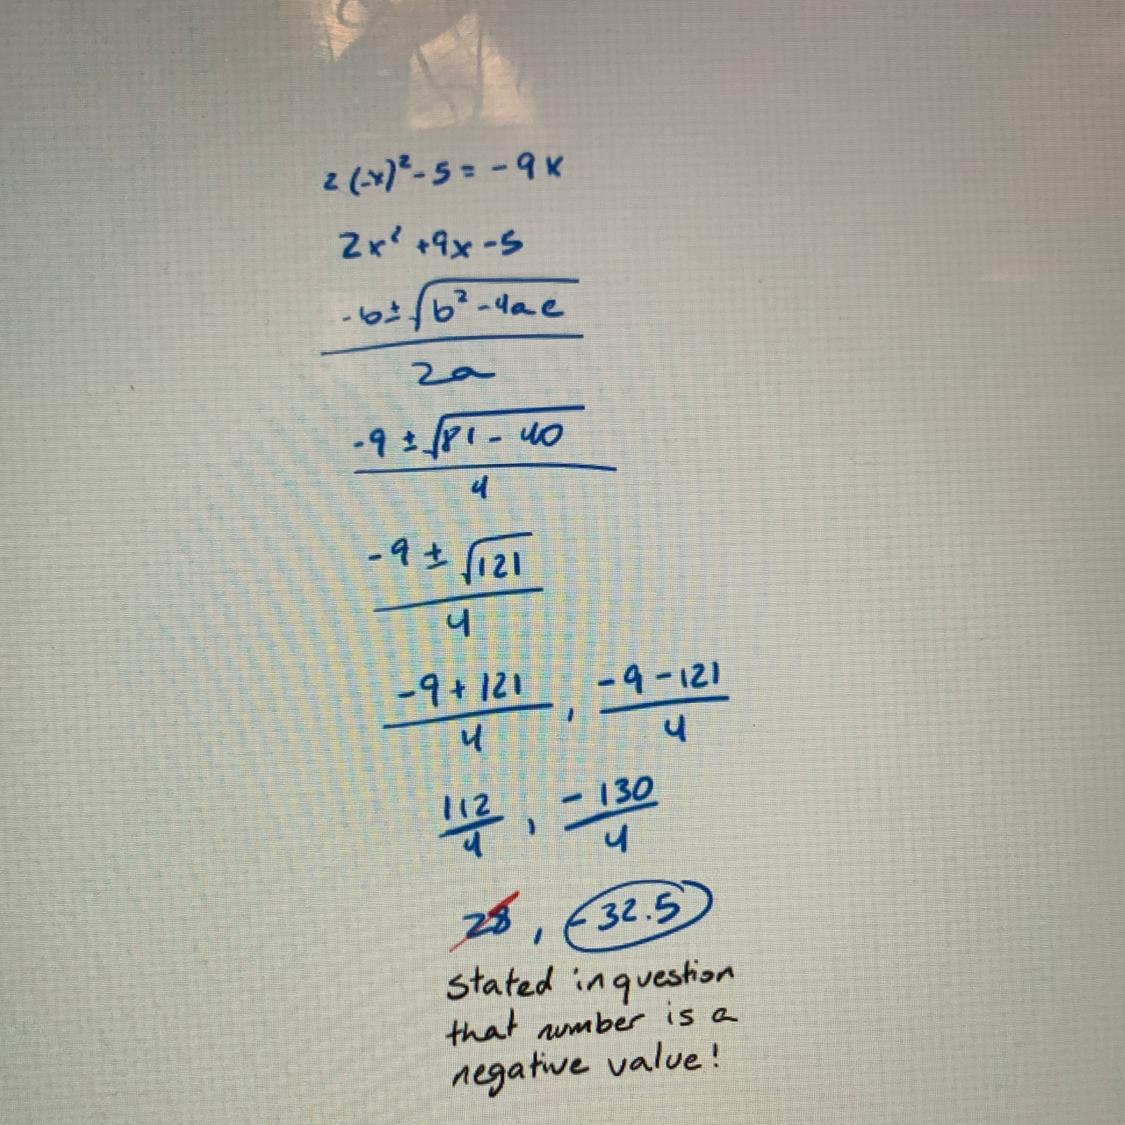 2(-x)² - 5 = -9x
2x² + 9x - 5
-b ± √(b² - 4ac)
2a
-9 ± √(81 - 40)
4
-9 ± √121
4
-9 + 121 , -9 - 121
4 4
112 , -130
4 4
28 , -32.5
stated in question
that number is a
negative value!